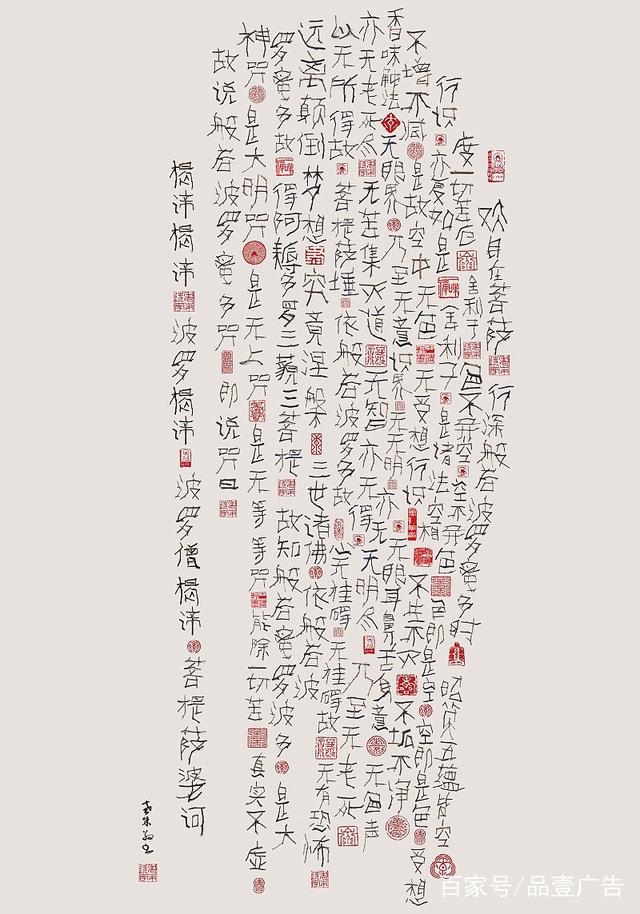 观自在菩萨行深般若波罗蜜多时照见五蕴皆空
度一切苦厄舍利子色不异空空不异色色即是空空即是色受想
行识亦复如是舍利子是诸法空相不生不灭不垢不净
不增不减是故空中无色无受想行识无眼耳鼻舌身意无色声
香味触法无眼界乃至无意识界无无明亦无无明尽乃至无老死
亦无老死尽无苦集灭道无智亦无得
以无所得故菩提萨埵依般若波罗多故心无挂碍无挂碍故无有恐怖
远离颠倒梦想究竟涅槃三世诸佛依般若波
罗蜜多故得阿耨多罗三藐三菩提故知般若蜜罗波多是大
神咒是大明咒是无上咒是无等等咒能除一切苦真实不虚
故说般若波罗蜜多咒即说咒曰
揭谛揭谛波罗揭谛波罗僧揭谛菩提萨婆诃
百家号/品壹广告